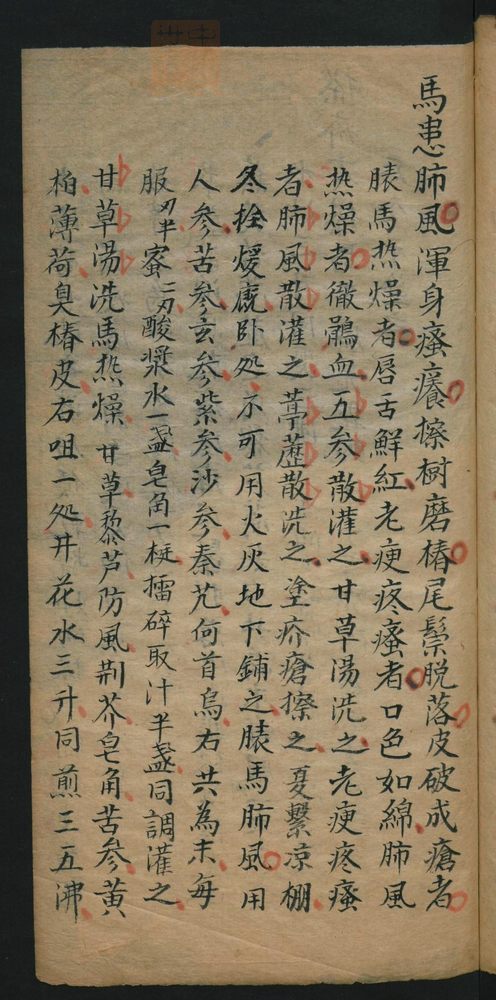 馬患肺風渾身瘙癢擦树磨樁尾鬃脱落皮破成瘡者
膘馬热燥者唇舌鮮紅老瘦疼瘙者口色如綿肺風
热燥者徹鶻血五参散灌之甘草湯洗之老瘦疼瘙
者肺風散灌之葶藶散洗之塗疥瘡擦之夏繫凉棚
冬拴煖廐卧处不可用火灰地下鋪之膘馬肺風用
人参苦参玄参紫参沙参秦艽何首烏右共為末每
服刄半蜜二刄酸漿水一盏皂角一梃擂碎取汁半盏同調灌之
甘草湯洗馬热燥 甘草藜芦防風荆芥皂角苦参黄
柏薄荷臭椿皮右咀一处井花水三升同煎三五沸